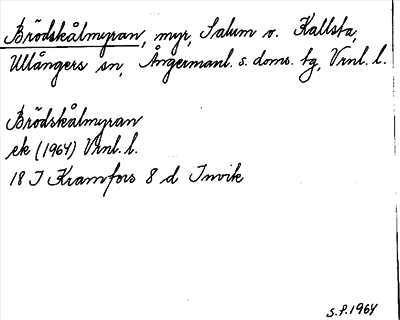 Brödskålmyran, myr, Salum o. Kallsta,
Ullångers sn, Ångermanl. s. doms. tg, Vrnl. l.
Brödskålmyran
ek (1964) Vrnl. l.
18 I Kramfors 8 d Invik
S.P. 1964